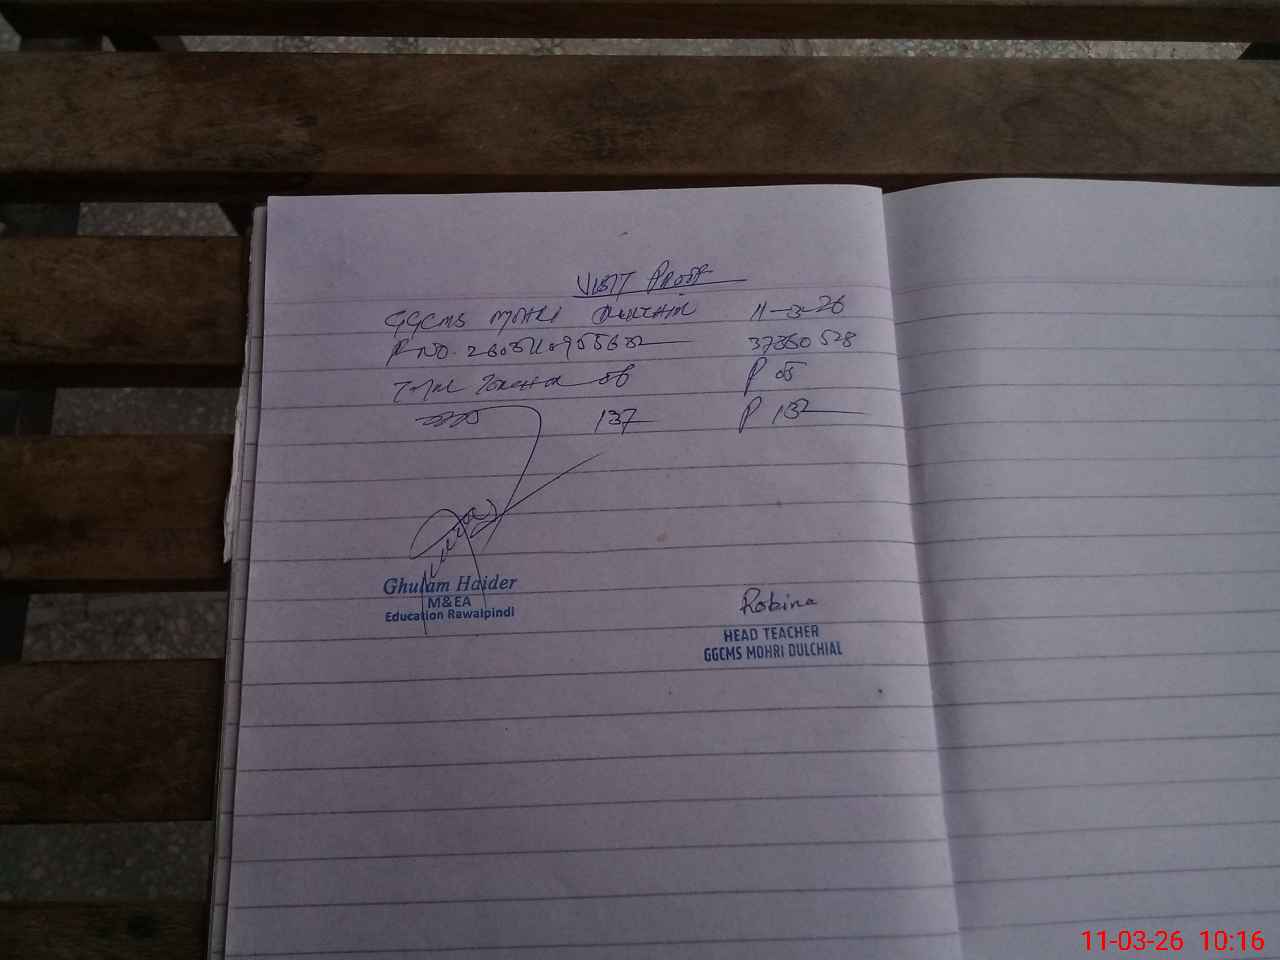 VISIT PROOF
GGCMS MOHRI DULCHIAL 11-3-26
P NO. 37360528
Total Teacher 06 P 05
137 P 132
Ghulam Haider
M&EA
Education Rawalpindi
Robina
HEAD TEACHER
GGCMS MOHRI DULCHIAL
11-03-26 10:16